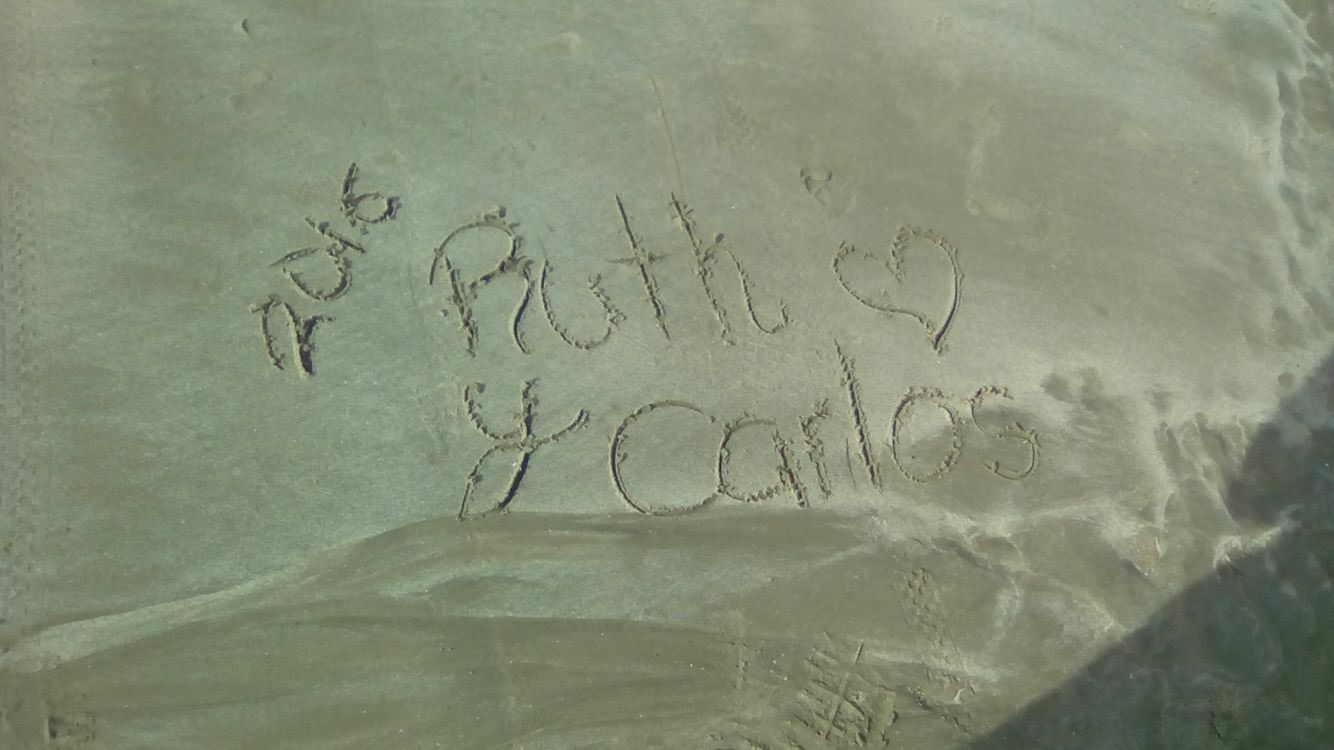 2016
Ruth ♡
y Carlos